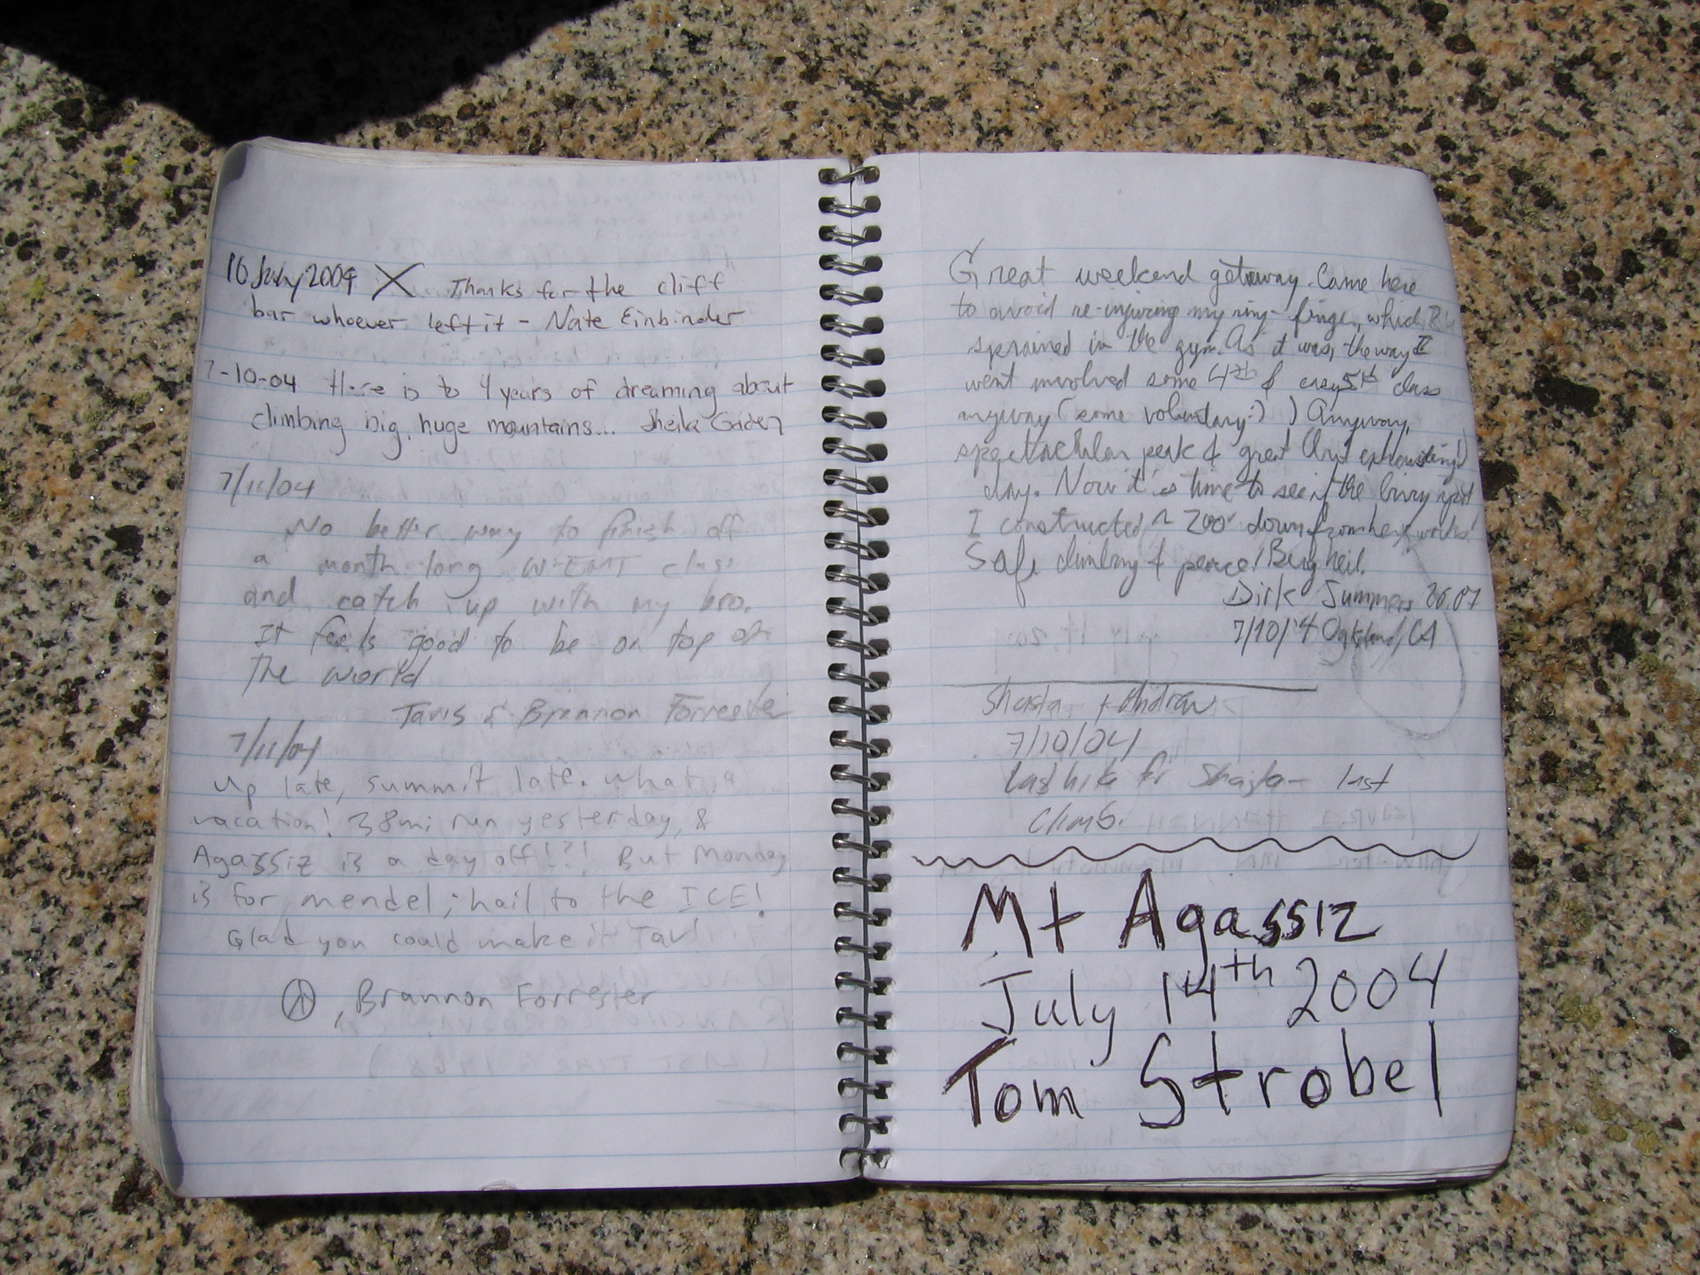 10 July 2004 X Thanks for the cliff
bar whoever left it - Nate Einbinder
7-10-04 Here is to 4 years of dreaming about
climbing big, huge mountains... Sheila
7/11/04
No better way to finish off
a month long W-EMT class
and catch up with my bro.
It feels good to be on top of
the world
Tavis & Brannon Forrester
7/11/04
Up late, summit late. what a
vacation! 38mi run yesterday, &
Agassiz is a day off!?! But Monday
is for mendel; hail to the ICE!
Glad you could make it Tav!
, Brannon Forrester
Great weekend getaway. Came here
to avoid re-injuring my ring-finger, which
sprained in the gym. As it was, the way I
went involved some 4th & easy 5th class
anyway (some voluntary:) ) Anyway,
spectacular peak & great (but exhausting!)
day. Now it's time to see if the
I constructed ~ 200' down from here works!
Safe climbing & peace! Berg heil.
Dirk Summers
7/10/'4 Oakland, CA
Shasta + Andrew
7/10/04
last hike for Shasta - last
climb.
Mt Agassiz
July 14th 2004
Tom Strobel